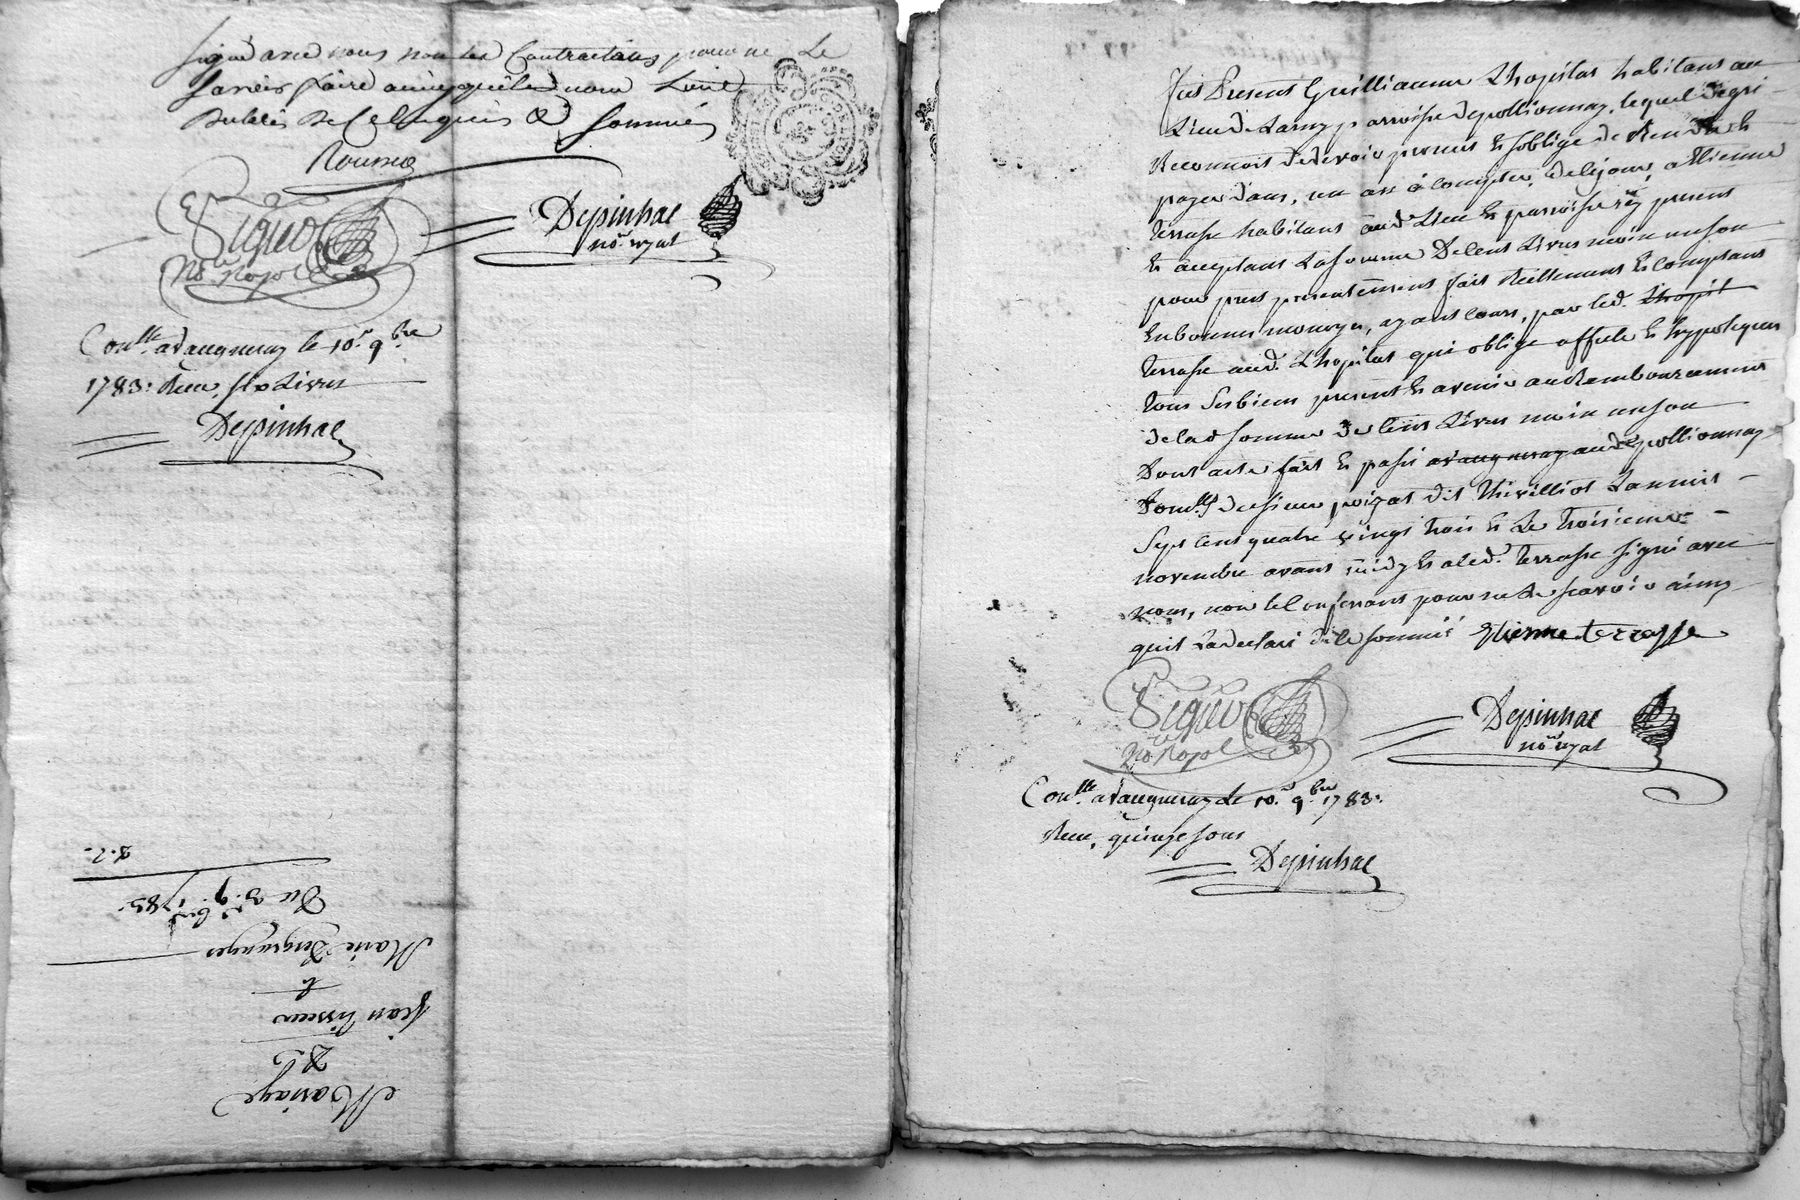 signé avec nous non les Contractans pour ne Le
Savoir faire ainsy quils nous Lont
declaré de Ce Enquis & Sommés
Rounio
Figuo
No.re Royal
Depinhac
no.re royal
Con.lle a Vaugneray le 10.e 9.bre
1783. Reçu, six Livres
Depinhac
Mariage
D.E
jean tisseur
&
Marie
Du 3.e 9.bre 1783.
Fut Present Guilliaume Lhopital habitant au
Lieu de Larny parroisse de pollionnay, lequel de gré
Reconnoit de devoir promet & soblige de Rendre &
payer dans, un an à Compter, de Ce jour, a Etienne
terrasse habitant aud Lieu & parroisse icy present
& acceptant La somme De Cent Livres moin un sou
pour prest presentement fait Reellement & Comptant
En bonnes monoyes, ayant Cours, par led. Lhopit
terrasse aud. Lhopital qui oblige affecte & hyppoteque
tous Ses biens present & avenir au Remboursement
de lad somme de Cent Livres moin un sou
Dont acte fait & passé a vaugneray aud pollionnay
Dom.lle du sieur poizat dit Thivilliot Lan mil
Sept Cent quatre vingt trois & Le troisieme
novembre avant midy & a led. terrasse signé avec
nous, non le Confessant pour ne Le scavoir ainsy
quil La declaré de Ce sommé Etienne terrasse
Figuo
No.re Royal
Depinhac
no.re royal
Con.lle a Vaugneray Le 10.e 9.bre 1783.
Reçu, quinze sous
Depinhac